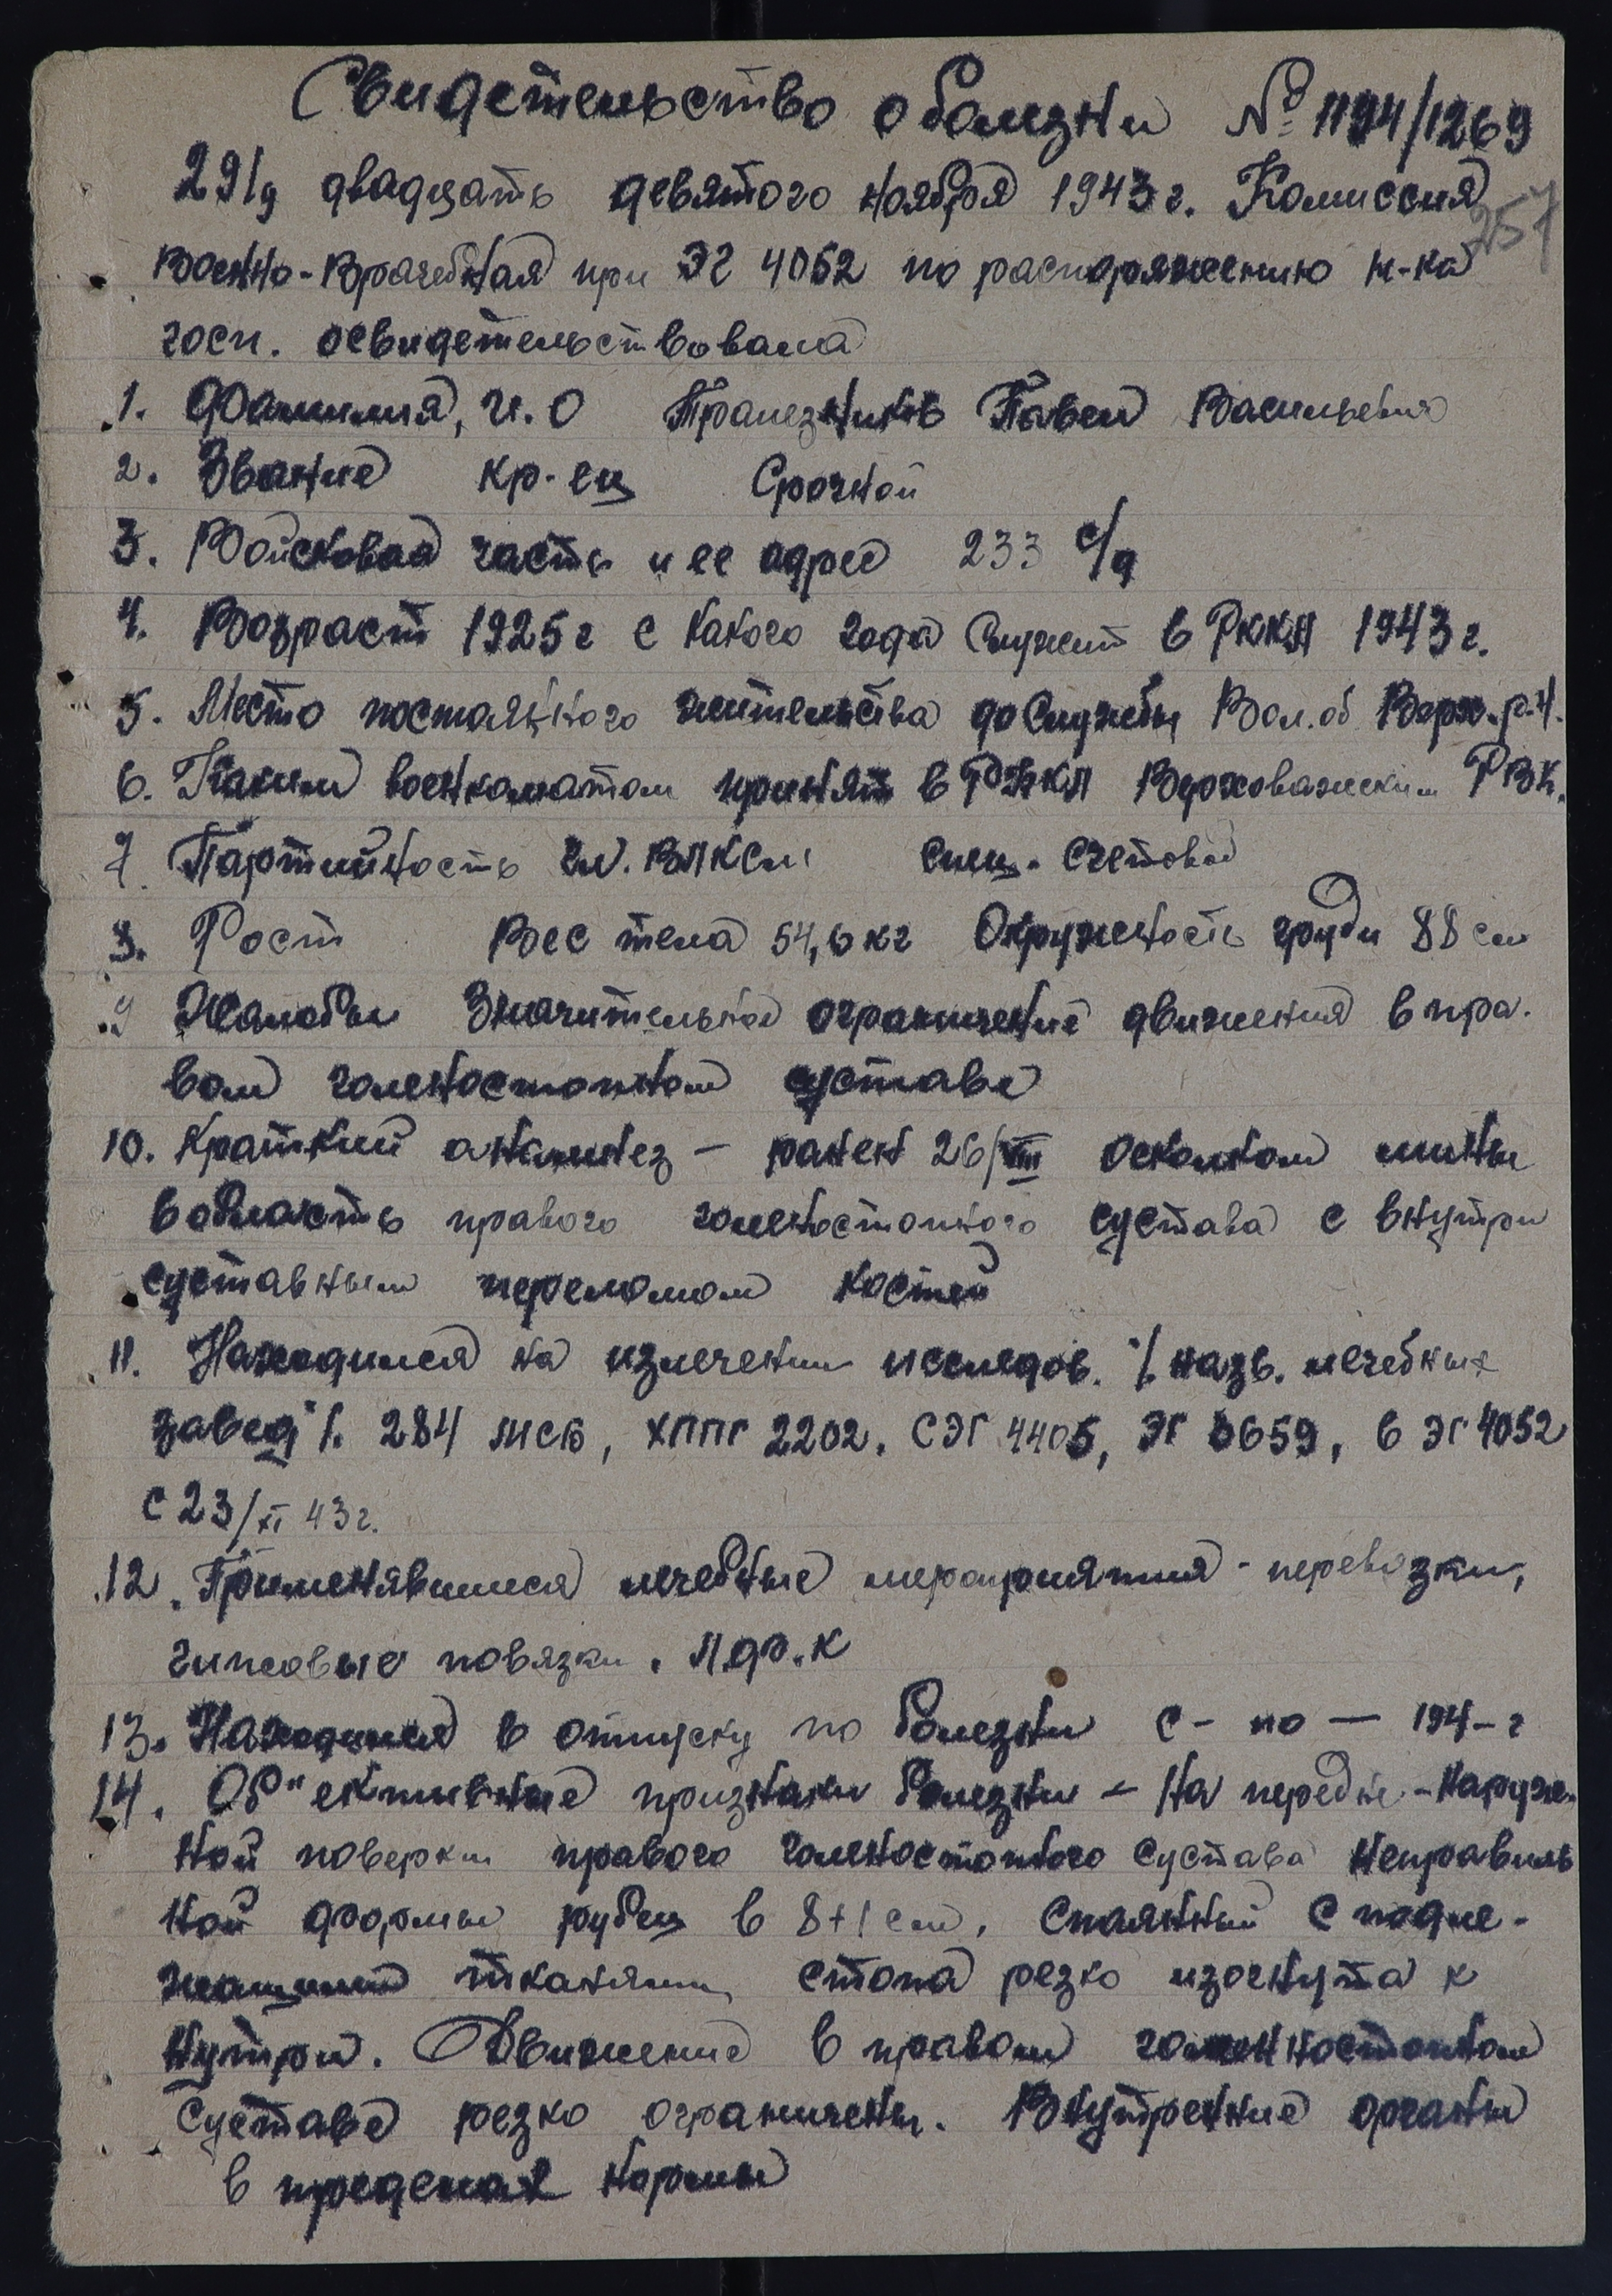 Свидетельство о болезни № 1194/1269
29/д двадцать девятого ноября 1943 г. Комиссия
257
Военно-Врачебная при ЭГ 4052 по распоряжению н-ка
госп. освидетельствовала
1. Фамилия, И. О Трапезников Павел Васильевич
2. Звание кр-ец Срочной
3. Войсковая часть и ее адрес 233 с/д
4. Возраст 1925 г с какого года служит в РККА 1943 г.
5. Место постоянного жительства до службы Вол. об Верх. р-н.
6. Каким военкоматом принят в РККА Верховажским РВК.
7. Партийность чл. ВЛКСМ спец. счетовод
8. Рост Вес тела 54,6 кг Окружность груди 88 см
9 Жалобы Значительное ограничение движения в пра-
вом голеностопном суставе
10. Краткий анамнез – ранен 26/VIII осколком мины
в область правого голеностопного сустава с внутри
суставным переломом костей
11. Находился на излечении исследов. /. назв. лечебных
завед /. 284 мсб, ХППГ 2202, СЭГ 4405, ЭГ 3659, в ЭГ 4052
с 23/XI 43 г.
12. Применявшиеся лечебные мероприятия - перевязки,
гипсовые повязки. Л.ф.к
13. Находился в отпуску по болезни с - по — 194- г
14. Об"ективные признаки болезни – на передне-наруж-
ной поверхн правого голеностопного сустава неправиль
ной формы рубец в 8+1 см, спаянный с подле-
жащими тканями, стопа резко изогнута к
нутри. Движение в правом голенностопном
суставе резко ограничены. Внутренние органы
в пределах нормы